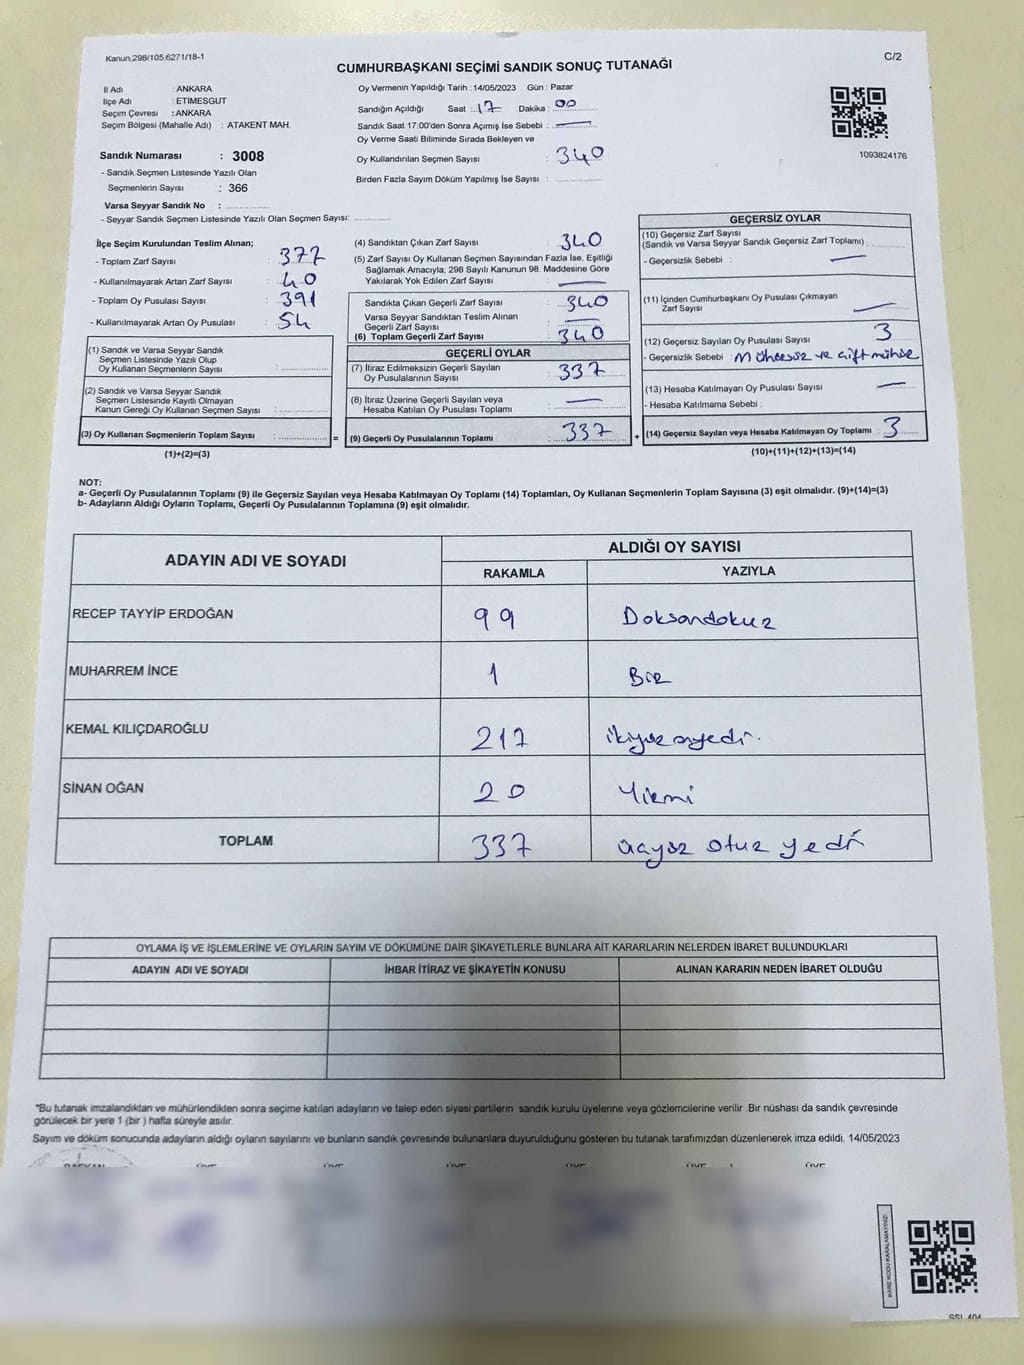 Kanun;298/105;6271/18-1
C/2
CUMHURBAŞKANI SEÇİMİ SANDIK SONUÇ TUTANAĞI
İl Adı : ANKARA
İlçe Adı : ETİMESGUT
Seçim Çevresi : ANKARA
Seçim Bölgesi (Mahalle Adı) : ATAKENT MAH.
Oy Vermenin Yapıldığı Tarih : 14/05/2023 Gün : Pazar
Sandığın Açıldığı Saat : 17 Dakika : 00
Sandık Saat 17:00'den Sonra Açımış İse Sebebi : —
Oy Verme Saati Bitiminde Sırada Bekleyen ve
Oy Kullandırılan Seçmen Sayısı : 340
Birden Fazla Sayım Döküm Yapılmış İse Sayısı : ............
1093824176
Sandık Numarası : 3008
- Sandık Seçmen Listesinde Yazılı Olan
Seçmenlerin Sayısı : 366
Varsa Seyyar Sandık No : ............
- Seyyar Sandık Seçmen Listesinde Yazılı Olan Seçmen Sayısı: ............
İlçe Seçim Kurulundan Teslim Alınan;
- Toplam Zarf Sayısı : 377
- Kullanılmayarak Artan Zarf Sayısı : 40
- Toplam Oy Pusulası Sayısı : 391
- Kullanılmayarak Artan Oy Pusulası : 54
(1) Sandık ve Varsa Seyyar Sandık
Seçmen Listesinde Yazılı Olup
Oy Kullanan Seçmenlerin Sayısı : ............
(2) Sandık ve Varsa Seyyar Sandık
Seçmen Listesinde Kayıtlı Olmayan
Kanun Gereği Oy Kullanan Seçmen Sayısı : ............
(3) Oy Kullanan Seçmenlerin Toplam Sayısı : ............ =
(1)+(2)=(3)
(4) Sandıktan Çıkan Zarf Sayısı : 340
(5) Zarf Sayısı Oy Kullanan Seçmen Sayısından Fazla İse, Eşitliği
Sağlamak Amacıyla; 298 Sayılı Kanunun 98. Maddesine Göre
Yakılarak Yok Edilen Zarf Sayısı : —
Sandıkta Çıkan Geçerli Zarf Sayısı : 340
Varsa Seyyar Sandıktan Teslim Alınan
Geçerli Zarf Sayısı : —
(6) Toplam Geçerli Zarf Sayısı : 340
GEÇERLİ OYLAR
(7) İtiraz Edilmeksizin Geçerli Sayılan
Oy Pusulalarının Sayısı : 337
(8) İtiraz Üzerine Geçerli Sayılan veya
Hesaba Katılan Oy Pusulası Toplamı : —
(9) Geçerli Oy Pusulalarının Toplamı : 337 +
GEÇERSİZ OYLAR
(10) Geçersiz Zarf Sayısı
(Sandık ve Varsa Seyyar Sandık Geçersiz Zarf Toplamı) : ............
- Geçersizlik Sebebi : —
(11) İçinden Cumhurbaşkanı Oy Pusulası Çıkmayan
Zarf Sayısı : —
(12) Geçersiz Sayılan Oy Pusulası Sayısı : 3
- Geçersizlik Sebebi : Mühürsüz ve çift mühür
(13) Hesaba Katılmayan Oy Pusulası Sayısı : —
- Hesaba Katılmama Sebebi :
(14) Geçersiz Sayılan veya Hesaba Katılmayan Oy Toplamı : 3
(10)+(11)+(12)+(13)=(14)
NOT:
a- Geçerli Oy Pusulalarının Toplamı (9) ile Geçersiz Sayılan veya Hesaba Katılmayan Oy Toplamı (14) Toplamları, Oy Kullanan Seçmenlerin Toplam Sayısına (3) eşit olmalıdır. (9)+(14)=(3)
b- Adayların Aldığı Oyların Toplamı, Geçerli Oy Pusulalarının Toplamına (9) eşit olmalıdır.
ADAYIN ADI VE SOYADI
ALDIĞI OY SAYISI
RAKAMLA YAZIYLA
RECEP TAYYİP ERDOĞAN 99 Doksandokuz
MUHARREM İNCE 1 Bir
KEMAL KILIÇDAROĞLU 217 ikiyüz onyedi.
SİNAN OĞAN 20 Yirmi
TOPLAM 337 üçyüz otuz yedi
OYLAMA İŞ VE İŞLEMLERİNE VE OYLARIN SAYIM VE DÖKÜMÜNE DAİR ŞİKAYETLERLE BUNLARA AİT KARARLARIN NELERDEN İBARET BULUNDUKLARI
ADAYIN ADI VE SOYADI İHBAR İTİRAZ VE ŞİKAYETİN KONUSU ALINAN KARARIN NEDEN İBARET OLDUĞU
*Bu tutanak imzalandıktan ve mühürlendikten sonra seçime katılan adayların ve talep eden siyasi partilerin sandık kurulu üyelerine veya gözlemcilerine verilir .Bir nüshası da sandık çevresinde
görülecek bir yere 1 (bir ) hafta süreyle asılır.
Sayım ve döküm sonucunda adayların aldığı oyların sayılarını ve bunların sandık çevresinde bulunanlara duyurulduğunu gösteren bu tutanak tarafımızdan düzenlenerek imza edildi. 14/05/2023
BAŞKAN ÜYE ÜYE ÜYE ÜYE ÜYE ÜYE
KARE KODU KARALAMAYINIZ!